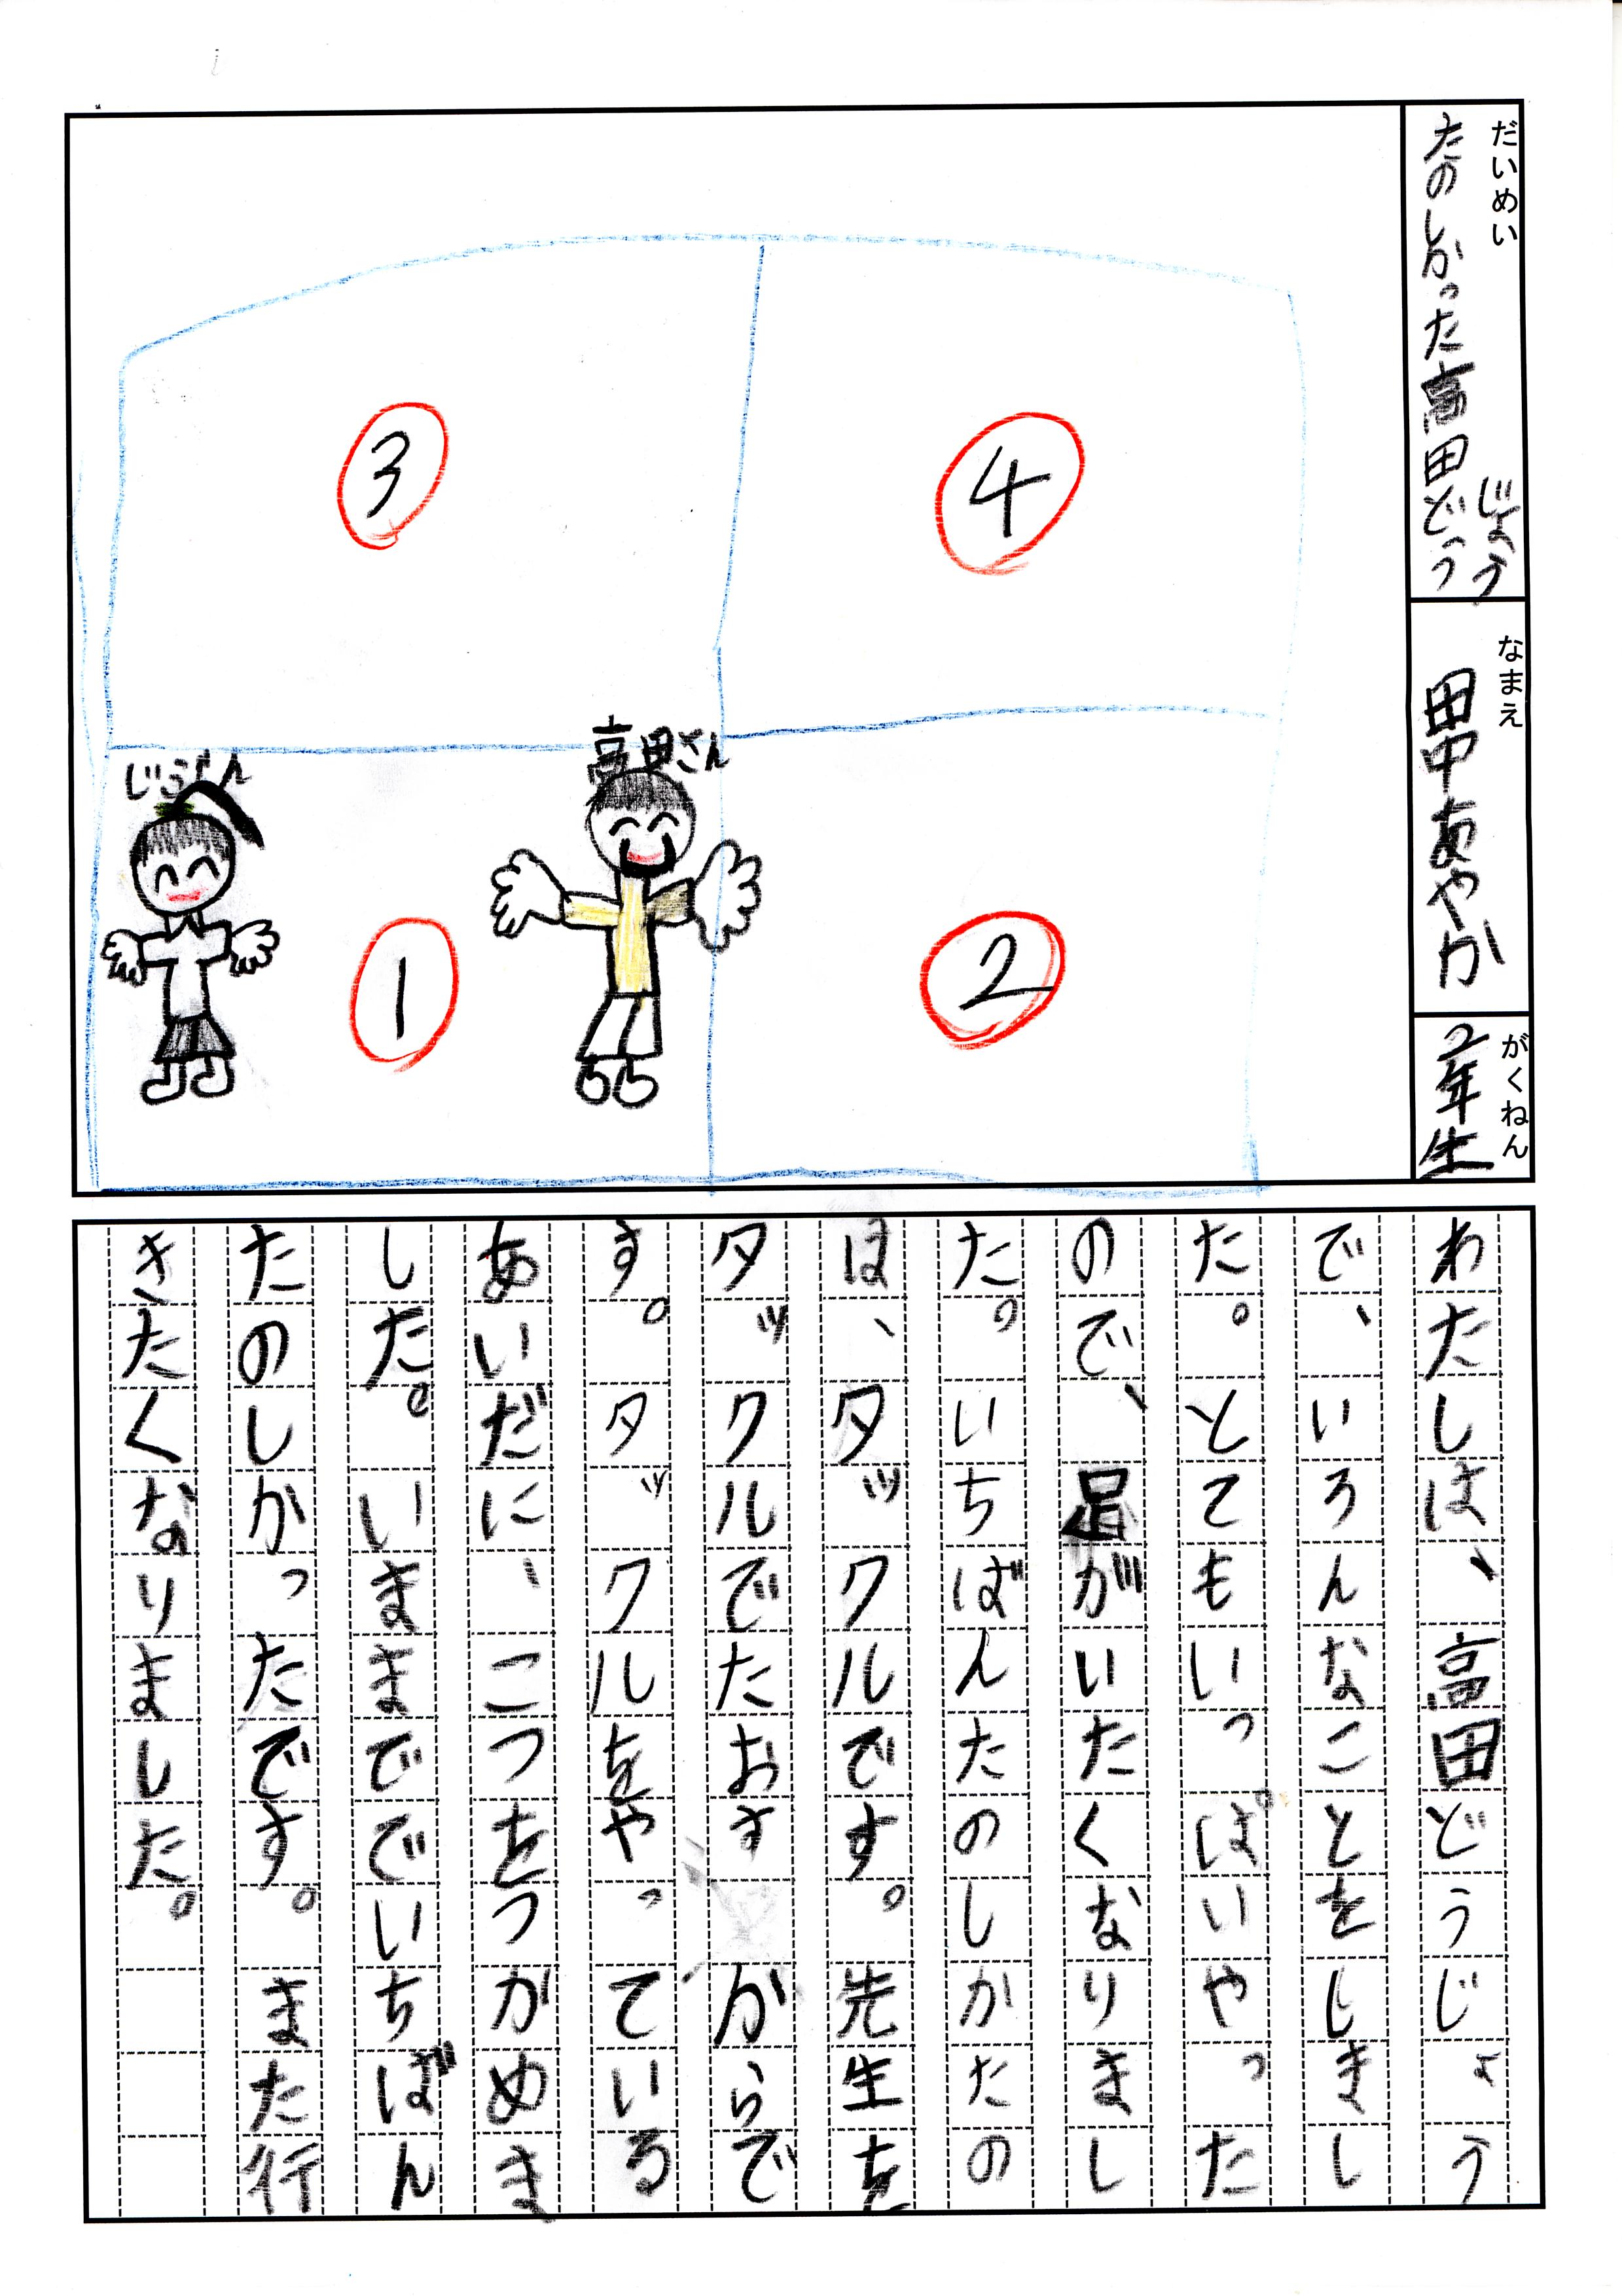 だいめい
たのしかった高田どうじょう
なまえ
田中あやか
がくねん
2年生
3
4
じぶん
高田さん
1
2
わたしは、高田どうじょう
で、いろんなことをしまし
た。とてもいっぱいやった
ので、足がいたくなりまし
た。いちばんたのしかたの
は、タックルです。先生を
タックルでたおす からで
す。タックルをやっている
あいだに、こつをつかめま
した。いままででいちばん
たのしかったです。また行
きたくなりました。